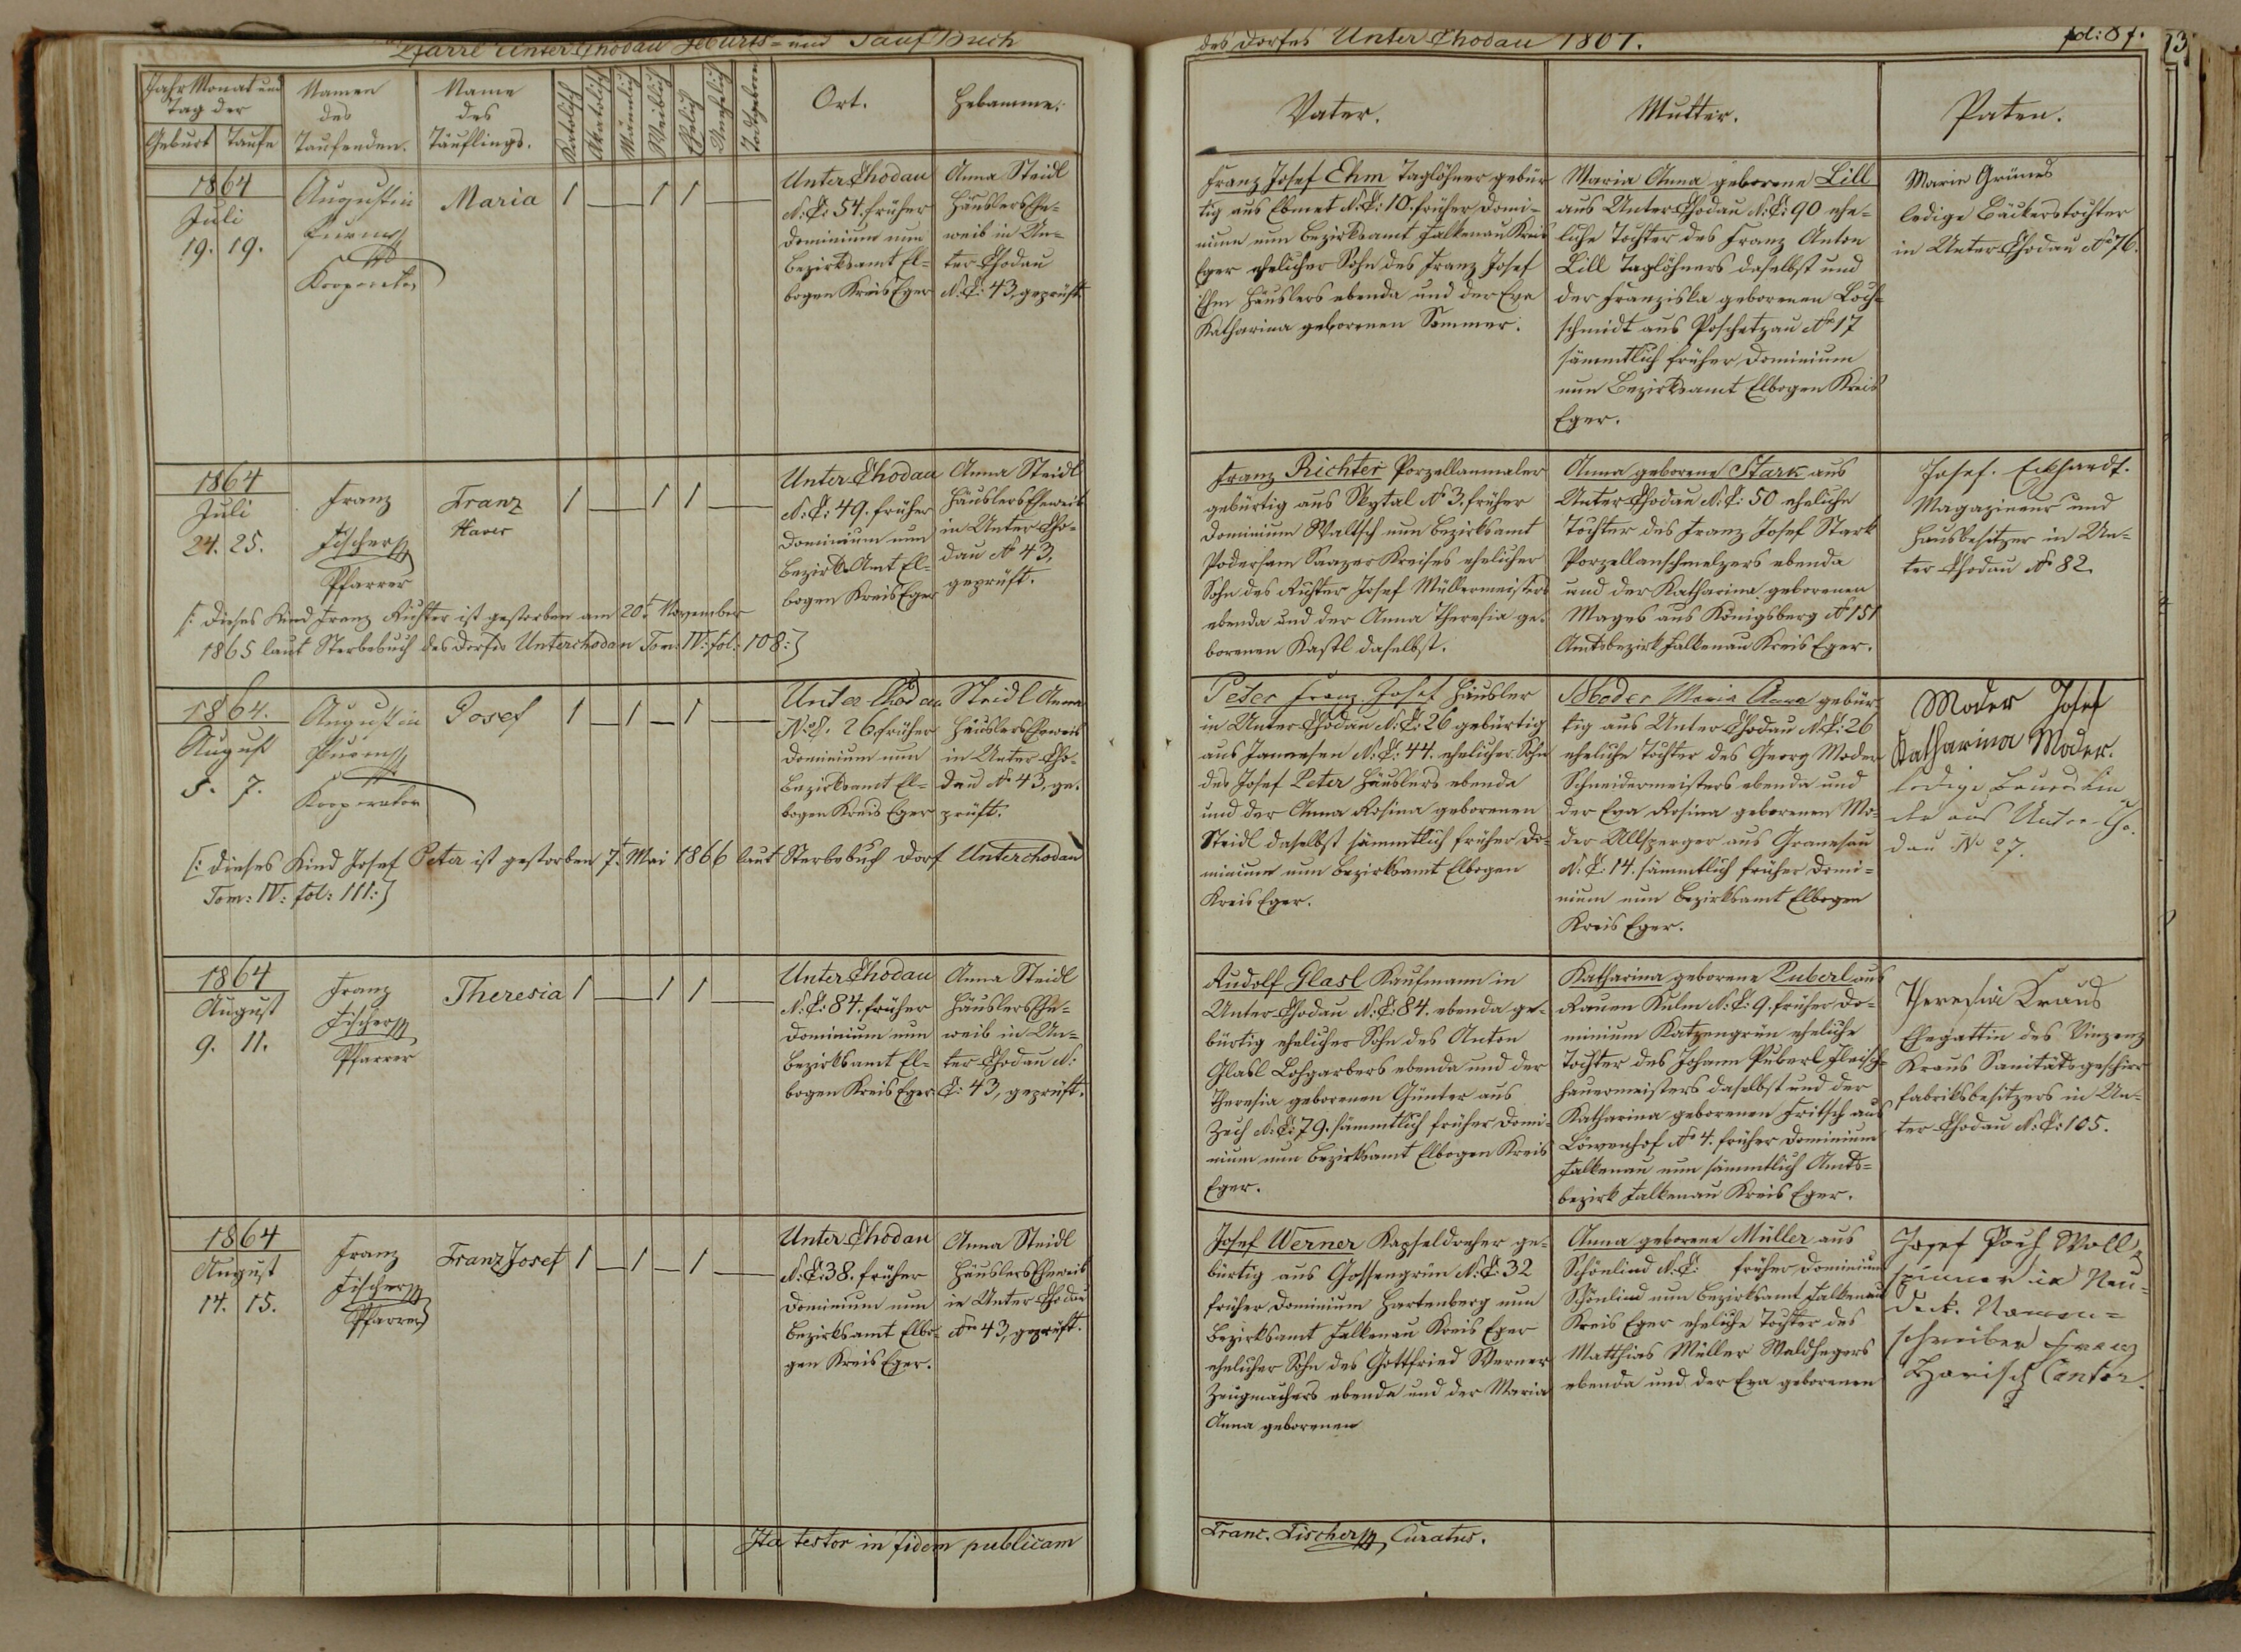 Pfarre Unter Chodau Geburts- und Tauf Buch
Jahr Monat und
Tag der
Geburt Taufe
Namen
des
Taufenden.
Name
des
Täuflings.
Katolisch
Akatolisch
Männlich
Weiblich
Ehelich
Unehelich
Todtgeboren
Ort.
Hebamme.
1864
Juli
19. 19.
Augustin
Kooperator
Maria
1 1 1
Unter Chodau
N: C: 54. früher
Dominium nun
Bezirksamt El-
bogen Kreis Eger
Anna Steidl
Häuslers Ehe-
weib in Un-
ter Chodau
N: C: 43, geprüft
1864
Juli
24. 25.
Franz
Fischer
Pfarrer
Franz
Xaver
1 1 1
Unter Chodau
N: C: 49. früher
Dominium nun
Bezirks Amt El-
bogen Kreis Eger
Anna Steidl
Häuslers Eheweib
in Unter Cho-
dau No 43,
geprüft.
[: Dieses Kind Franz Richter ist gestorben am 20t November
1865 laut Sterbebuch des Dorfes Unterchodau Tom: IV: fol: 108:]
1864.
August
5. 7.
Augustin
Kooperator
Josef
1 1 1
Unter Chodau
No C. 26 früher
Dominium nun
Bezirksamt El-
bogen Kreis Eger
Steidl Anna
Häuslers Eheweib
in Unter Cho-
dau No 43, ge-
prüft.
[: Dieses Kind Josef Peter ist gestorben 7t Mai 1866 laut Sterbebuch Dorf Unterchodau
Tom: IV: fol: 111:]
1864
August
9. 11.
Franz
Fischer
Pfarrer
Theresia
1 1 1
Unter Chodau
N: C: 84. früher
Dominium nun
Bezirksamt El-
bogen Kreis Eger
Anna Steidl
Häuslers Ehe-
weib in Un-
ter Chodau N:
C: 43, geprüft.
1864
August
14. 15.
Franz
Fischer
Pfarrer
Franz Josef
1 1 1
Unter Chodau
N: C: 38. früher
Dominium nun
Bezirksamt Elbo-
gen Kreis Eger.
Anna Steidl
Häuslers Eheweib
in Unter Chodau
No 43, geprüft.
Ita testor in fidem publicam
des Dorfes Unter Chodau 1864.
fol: 87.
Vater.
Mutter.
Paten.
Franz Josef Ehm Taglöhner gebür
tig aus Ebmet N: C: 10. früher Domi-
nium nun Bezirksamt Falkenau Kreis
Eger ehelicher Sohn des Franz Josef
Ehm Häuslers ebenda und der Eva
Katharina geborenen Sommer.
Maria Anna geborene Lill
aus Unter Chodau N: C: 90 ehe-
liche Tochter des Franz Anton
Lill Taglöhners daselbst und
der Franziska geborenen Loch-
schmidt aus Poschetzau No 17
sämmtlich früher Dominium
nun Bezirksamt Elbogen Kreis
Eger.
Marie Grünes
ledige Bäckerstochter
in Unter Chodau No 76.
Franz Richter Porzellanmaler
gebürtig aus Skytal No 3. früher
Dominium Waltsch nun Bezirksamt
Podersam Saazer Kreises ehelicher
Sohn des Richter Josef Müllermeisters
ebenda und der Anna Theresia ge-
borenen Kastl daselbst.
Anna geborene Stark aus
Unter Chodau N: C: 50 eheliche
Tochter des Franz Josef Stark
Porzellanschmelzers ebenda
und der Katharina geborenen
Mages aus Königsberg No 151
Amtsbezirk Falkenau Kreis Eger.
Josef. Eckhardt.
Magazineur und
Hausbesitzer in Un-
ter Chodau No 82.
Peter Franz Josef Häusler
in Unter Chodau N: C: 26 gebürtig
aus Janessen N: C: 44. ehelicher Sohn
des Josef Peter Häuslers ebenda
und der Anna Rosina geborenen
Steidl daselbst sämmtlich früher Do-
minium nun Bezirksamt Elbogen
Kreis Eger.
Moder Maria Anna gebür-
tig aus Unter Chodau N: C: 26
eheliche Tochter des Georg Moder
Schneidermeisters ebenda und
der Eva Rosina geborenen Mo-
der Allsperger aus Granesau
N: C: 14. sämmtlich früher Domi-
nium nun Bezirksamt Elbogen
Kreis Eger.
Moder Josef
Katharina Moder.
ledige
aus Unter Cho-
dau No 27.
Rudolf Glasl Kaufmann in
Unter Chodau N: C: 84. ebenda ge-
bürtig ehelicher Sohn des Anton
Glasl Lohgarbers ebenda und der
Theresia geborenen Günter aus
Zech N: C: 79. sämmtlich früher Domi-
nium nun Bezirksamt Elbogen Kreis
Eger.
Katharina geborene Puberl aus
Rauen Kulm N: C: 9. früher Do-
minium Katzengrün eheliche
Tochter des Johann Puberl Fleisch-
hauermeisters daselbst und der
Katharina geborenen Fritsch aus
Löwenhof No 4. früher Dominium
Falkenau nun sämmtlich Amts-
bezirk Falkenau Kreis Eger.
Theresia Kraus
Ehegattin des Vinzenz
Kraus Sanitätsgeschirr
fabriksbesitzers in Un-
ter Chodau N: C: 105.
Josef Werner Kapseldreher ge-
bürtig aus Gossengrün N: C: 32
früher Dominium Hartenberg nun
Bezirksamt Falkenau Kreis Eger
ehelicher Sohn des Gottfried Werner
Zeugmachers ebenda und der Maria
Anna geborenen
Anna geborene Müller aus
Schönlind N: C: früher Dominium
Schönlind nun Bezirksamt Falkenau
Kreis Eger eheliche Tochter des
Matthias Müller Waldhegers
ebenda und der Eva geborenen
Josef Poch Woll-
spinner in Neu-
deck. Namen-
schreiber Franz
Harisch Cantor.
Franc. Fischer Curatus.